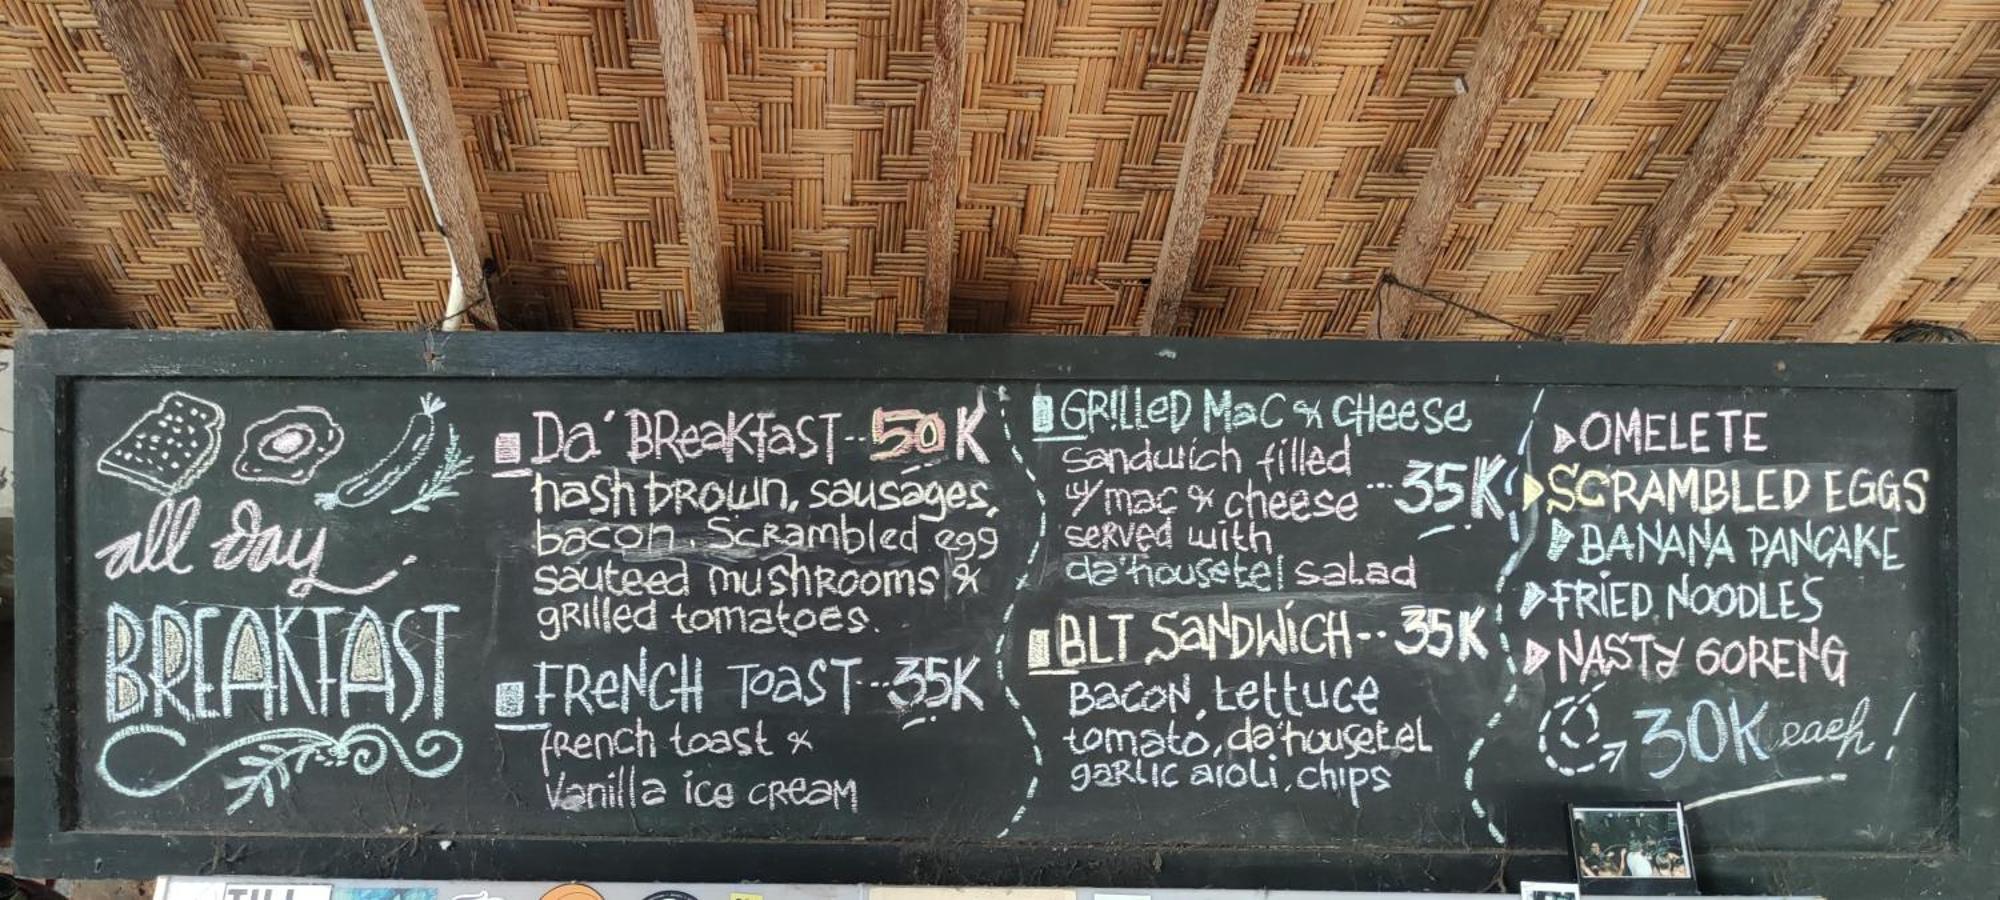 all day
BREAKFAST
Da' BREAKFAST -- 50K
hash brown, sausages,
bacon. Scrambled egg
sauteed mushrooms &
grilled tomatoes.
FRENCH TOAST --- 35K
french toast &
Vanilla ice cream
GRILLED MAC & CHEESE
sandwich filled
w/ mac & cheese --- 35K
served with
da'housetel salad
BLT SANDWICH -- 35K
BACON, Lettuce
tomato, da'housetel
garlic aioli, chips
OMELETE
SCRAMBLED EGGS
BANANA PANCAKE
FRIED NOODLES
NASTY GORENG
30K each!